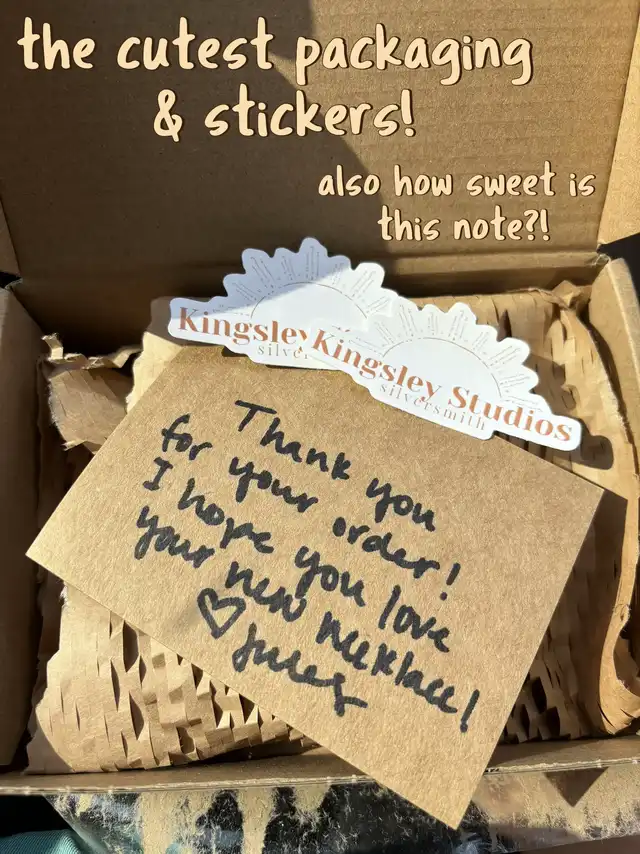 the cutest packaging
& stickers!
also how sweet is
this note?!
Kingsley
silver
Kingsley Studios
silversmith
Thank you
for your order!
I hope you love
your new necklace!
♡ Jules